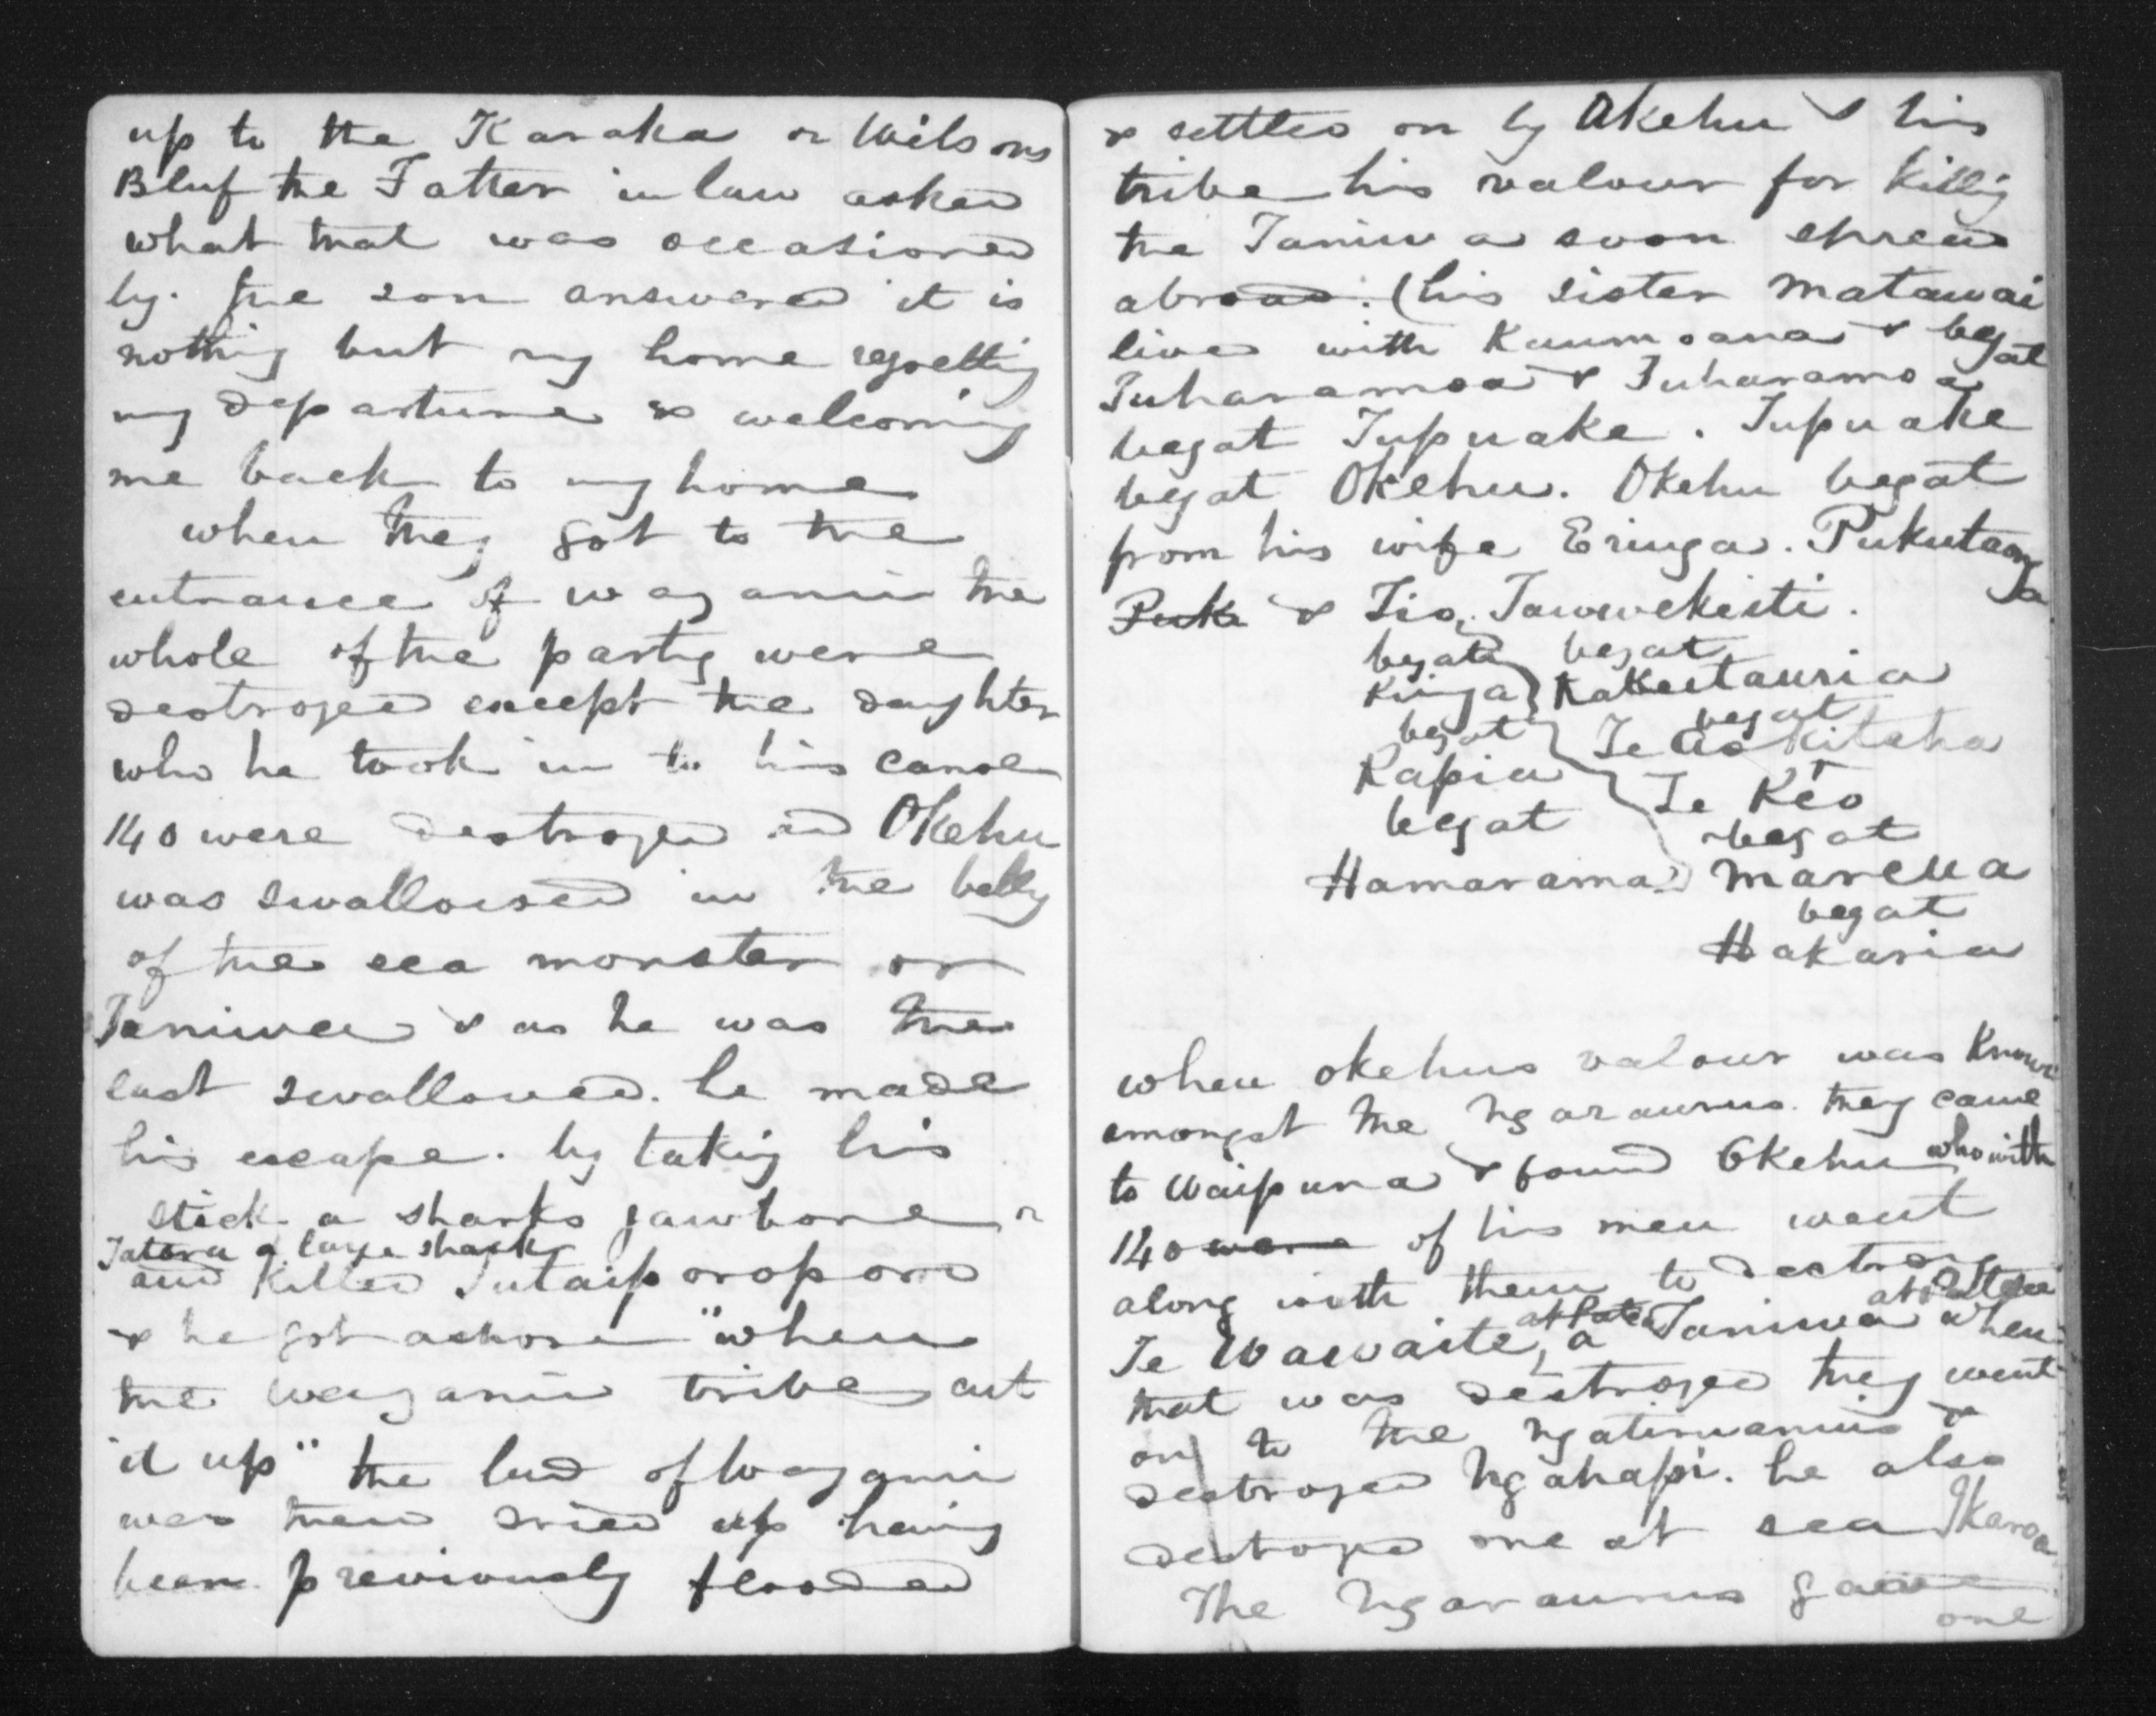 up to the Karaka or Wilsons
Bluf the Father in law asked
what that was occasioned
by. the son answered it is
nothing but my home regretting
my departure & welcoming
me back to my home
when they got to the
entrance of waganui the
whole of the party were
destroyed except the daughter
who he took in to his canoe
140 were destroyed Okehu
was swallowed in the belly
of the sea monster or
Taniwa & as he was the
last swallowed. he made
his escape. by taking his
stick a sharks jawbone
Tatera a large shark
and killed Tutaiporoporo
& he got ashore "when
the waganui tribe cut
it up" the land of Waganui
was then dried up having
been previously flooded
& settled on by Okehu & his
tribe his valour for killig
the Taniwa soon spread
abroad. (his sister Matawai
lived with Kaumoana & begat
Tuharamoa & Tuharamoa
begat Tupuake. Tupuake
begat Okehu. Okehu begat
from his wife Eringa. Pukutaonga
Puke & Tio, Tawwekeiti.
begat begat
Kinga
begat begat
Te Aokitaha
Rapia
Te Keo
begat begat
Hamarama Mareua
begat
Hakaria
when okehus valour was Known
amongst the Ngaraurus. they came
to Waipuna & found Okehu who with
140 were of his men went
along with them to destroy
at Patea
Te Wawaite, a Taniwa when
that was destroyed they went
on to the &
destroyed Ngahapi. he also
destroyed one at sea Ikaroa
The Ngaraurus gave
one